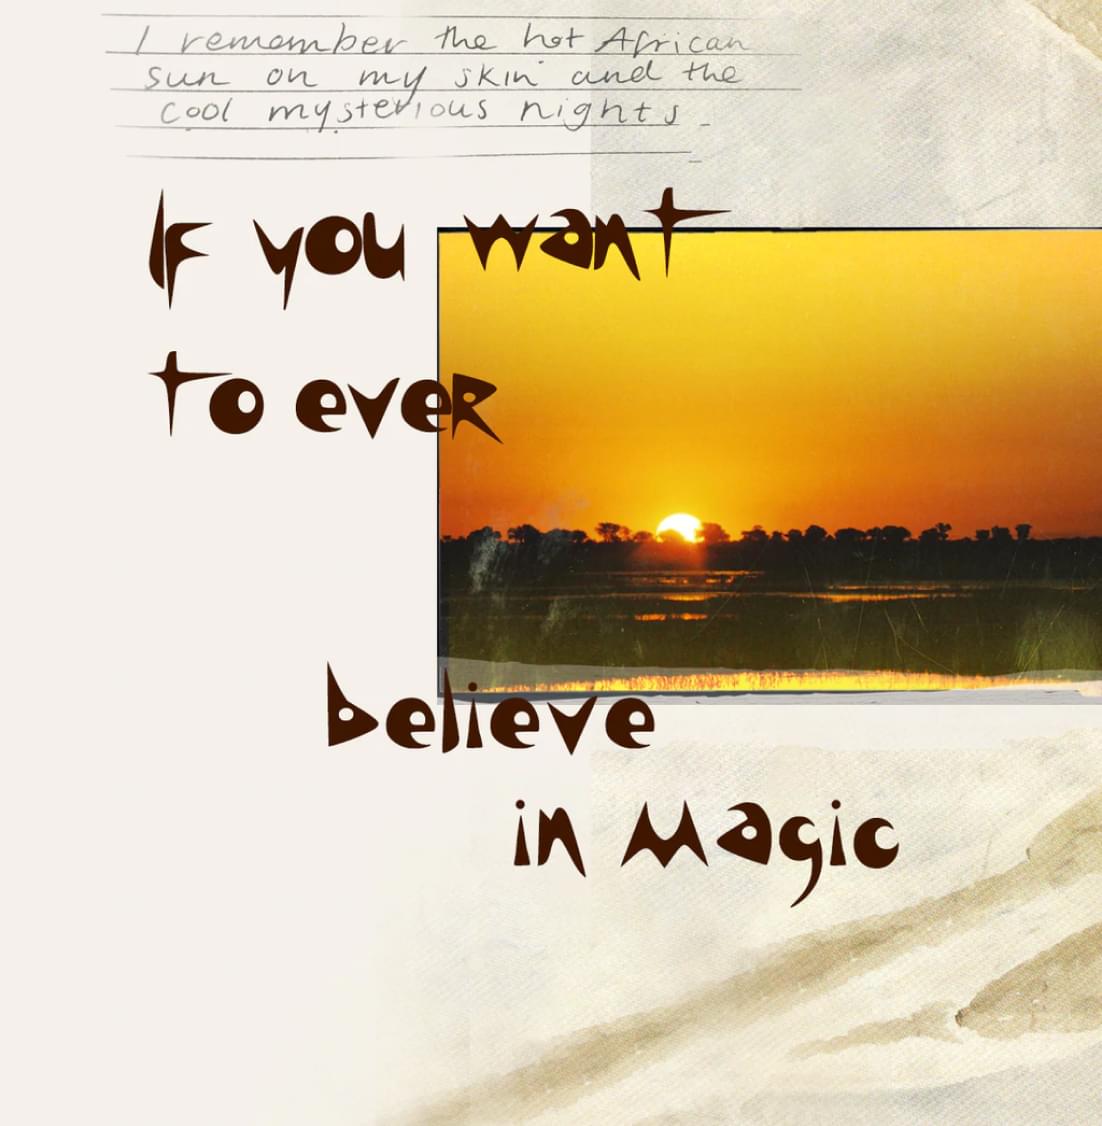 I remember the hot African
sun on my skin and the
cool mysterious nights
If you want
to ever
believe
in Magic